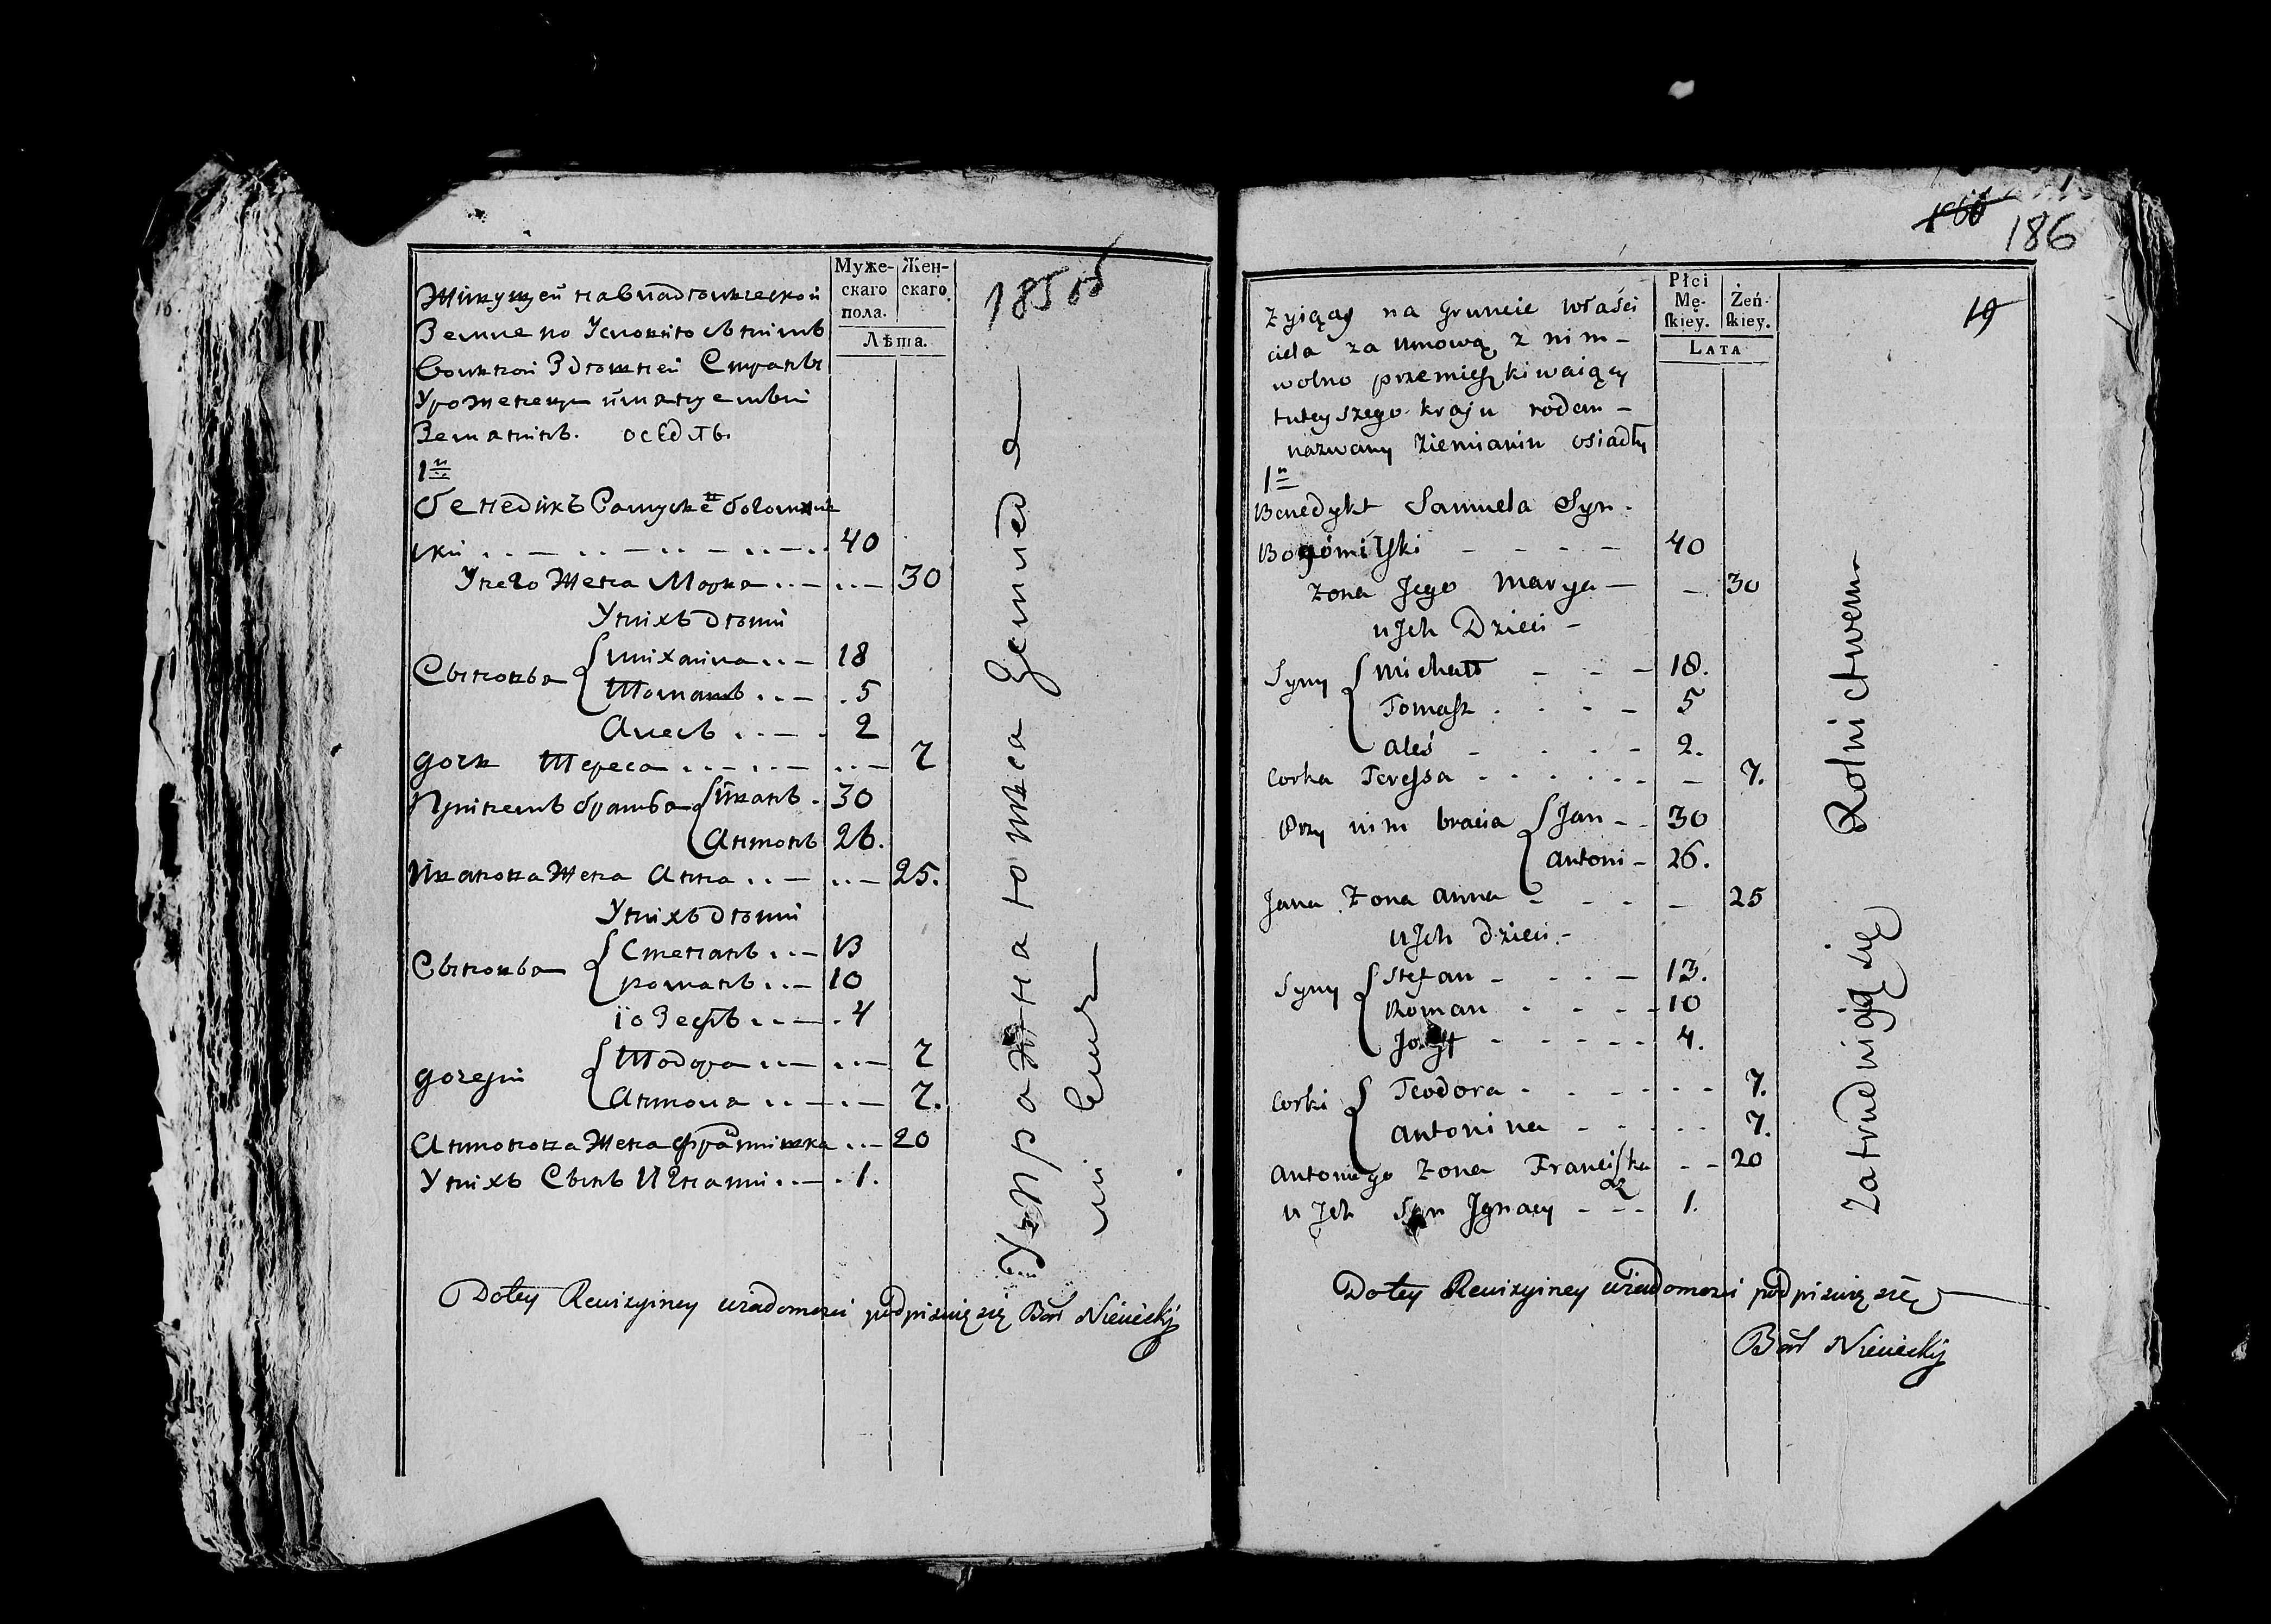 Муже-
скаго
пола.
Жен-
скаго.
Лѣта.
185 об
Живущей на владѣльческой
Земле по Условію съ нимъ
вольной здѣшней Страны
Уроженец именуемый
Земянинъ. осѣдлъ.
1й
Бенедикъ Самуеля Богомиль
ски 40
У него Жена Марья 30
У нихъ дѣти
Сыновья Михаила 18
Томашъ 5
Алесь 2
Дочь Тереса 7
При немъ братья Иванъ 30
Антонъ 26.
Иванова Жена Анна 25.
У нихъ дѣти
Сыновья Степанъ 13
Романъ 10
Іозефъ 4
Дочери Тодора 7
Антоля 7.
Антонова Жена Францишка 20
У нихъ Сынъ Игнаци 1.
Упражняюся Земледѣ
ліи
Do tey Rewizyiney wiadomosci podpisuię się Bar Nieniecki
186
19
Płci
Mę-
skiey.
Żeń-
skiey.
LATA
Zyiący na Gruncie właści
ciela za umową z nim –
wolno przemieszkiwaiący
tuteyszego kraju rodem –
nazwany Ziemianin osiadły
1n
Benedykt Samuela Syn.
Bogomilski – – – – 40
Zona Jego Marya – – 30
u Jch Dzieci –
Syny Michał – – – 18.
Tomasz . . . – 5
Aleś – . . – 2.
Corka Teressa . . . . . – – 7.
Przy nim bracia Jan – – 30
Antoni – 26.
Jana Zona Anna – – – – 25
u Jch dzieci. –
Syny Stefan – – – 13.
Roman . . . – 10
Jozef – – – – 4.
Corki Teodora . – – – – 7.
Antonina – – – . . 7.
Antoniego Zona Franciszka – – 20
u Jch Syn Jgnacy – – – 1.
Zatrudniąją się Rolnictwem
Do tey Rewizyiney wiadomosci podpisuię się
Bar Nieniecki